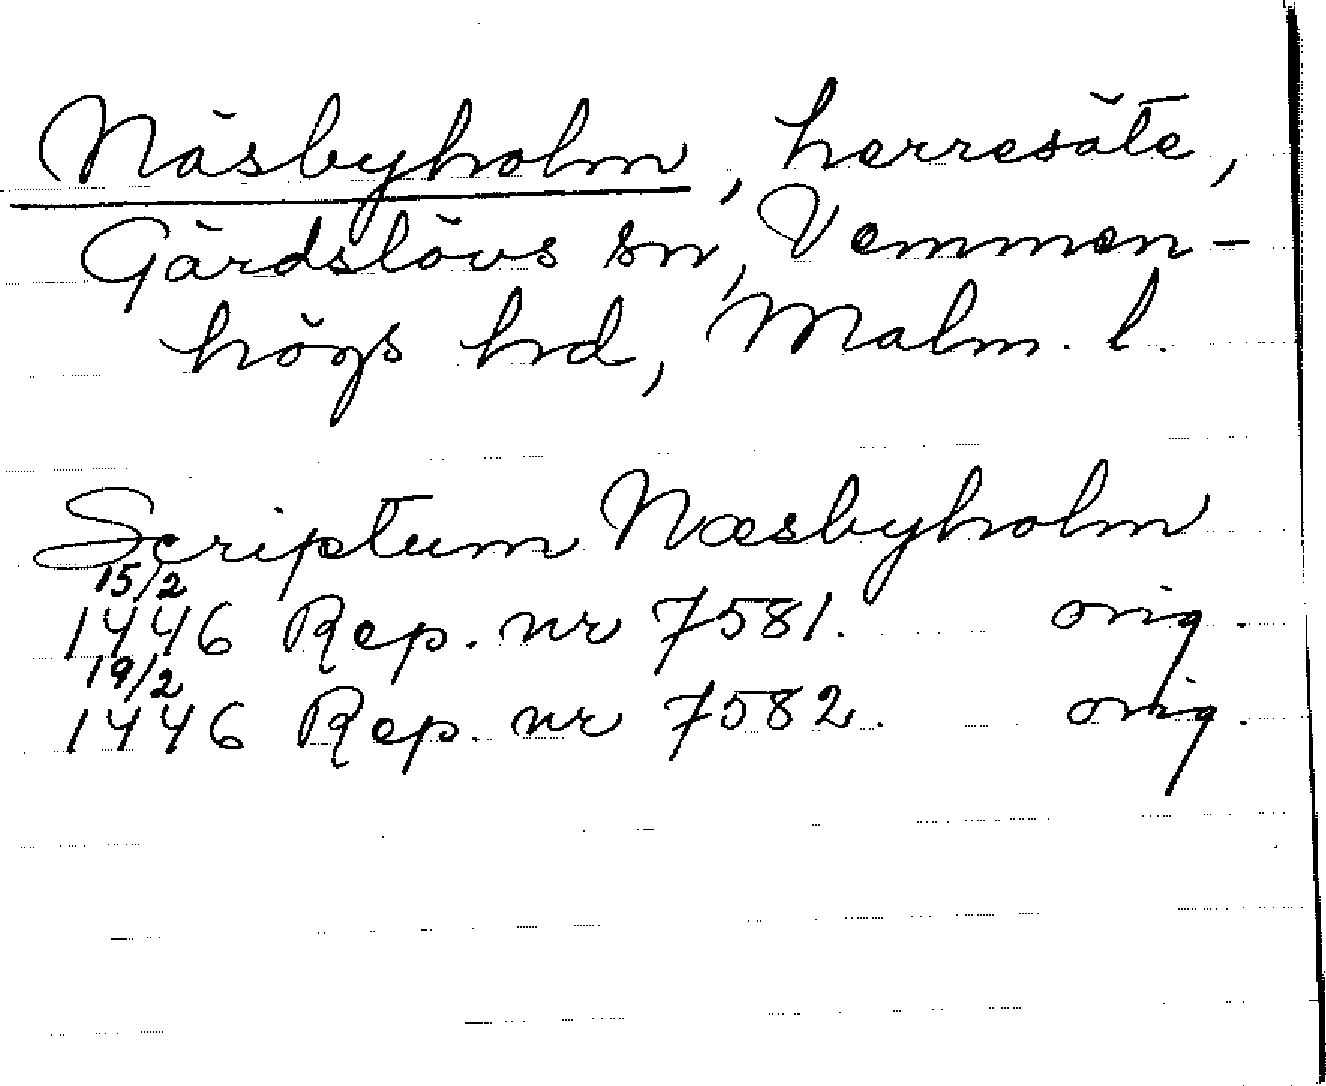 Näsbyholm, herresäte,
Gärdslövs sn, Vemmen-
högs hd, Malm. l.
Scriptum Næsbyholm
15/2
1446 Rep. nr 7581. orig.
19/2
1446 Rep. nr 7582. orig.